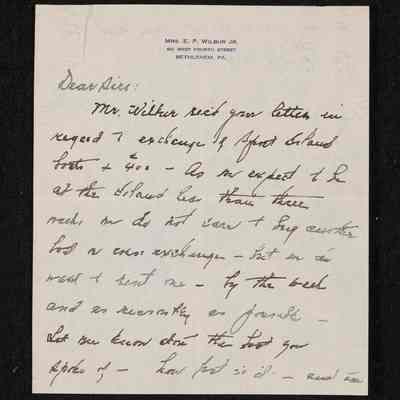 MRS. E. P. WILBUR JR.
WEST FOURTH STREET
BETHLEHEM, PA.
Dear Sirs:
Mr. Wilbur rec'd your letter in
regard to exchange of Island
boats + $400 - As we expect to be
at the Island less than three
weeks we do not care to buy another
boat or even exchange - but we do
want to rent one - by the week
and as reasonably as possible -
Let me know about the boat you
spoke of - how fast is it - and